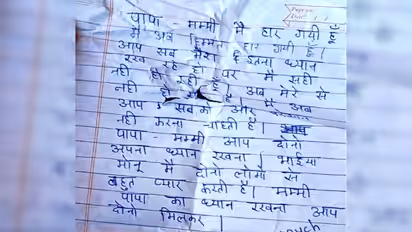 पापा - मम्मी मैं हार गयी हूँ
मैं अब हिम्मत हार गयी हूँ।
आप सब मेरा इतना ध्यान
रख रहे हो पर मैं सही
नही हो रही हूँ। अब मेरे से
नही हो मैं अब
आप सब को और
नही करना चाहती हूँ।
पापा - मम्मी आप दोनो
अपना ध्यान रखना। भाईया
मोनू मैं दोनो लोगो से
बहुत प्यार करती हूँ। मम्मी
पापा का ध्यान रखना आप
दोनो मिलकर।